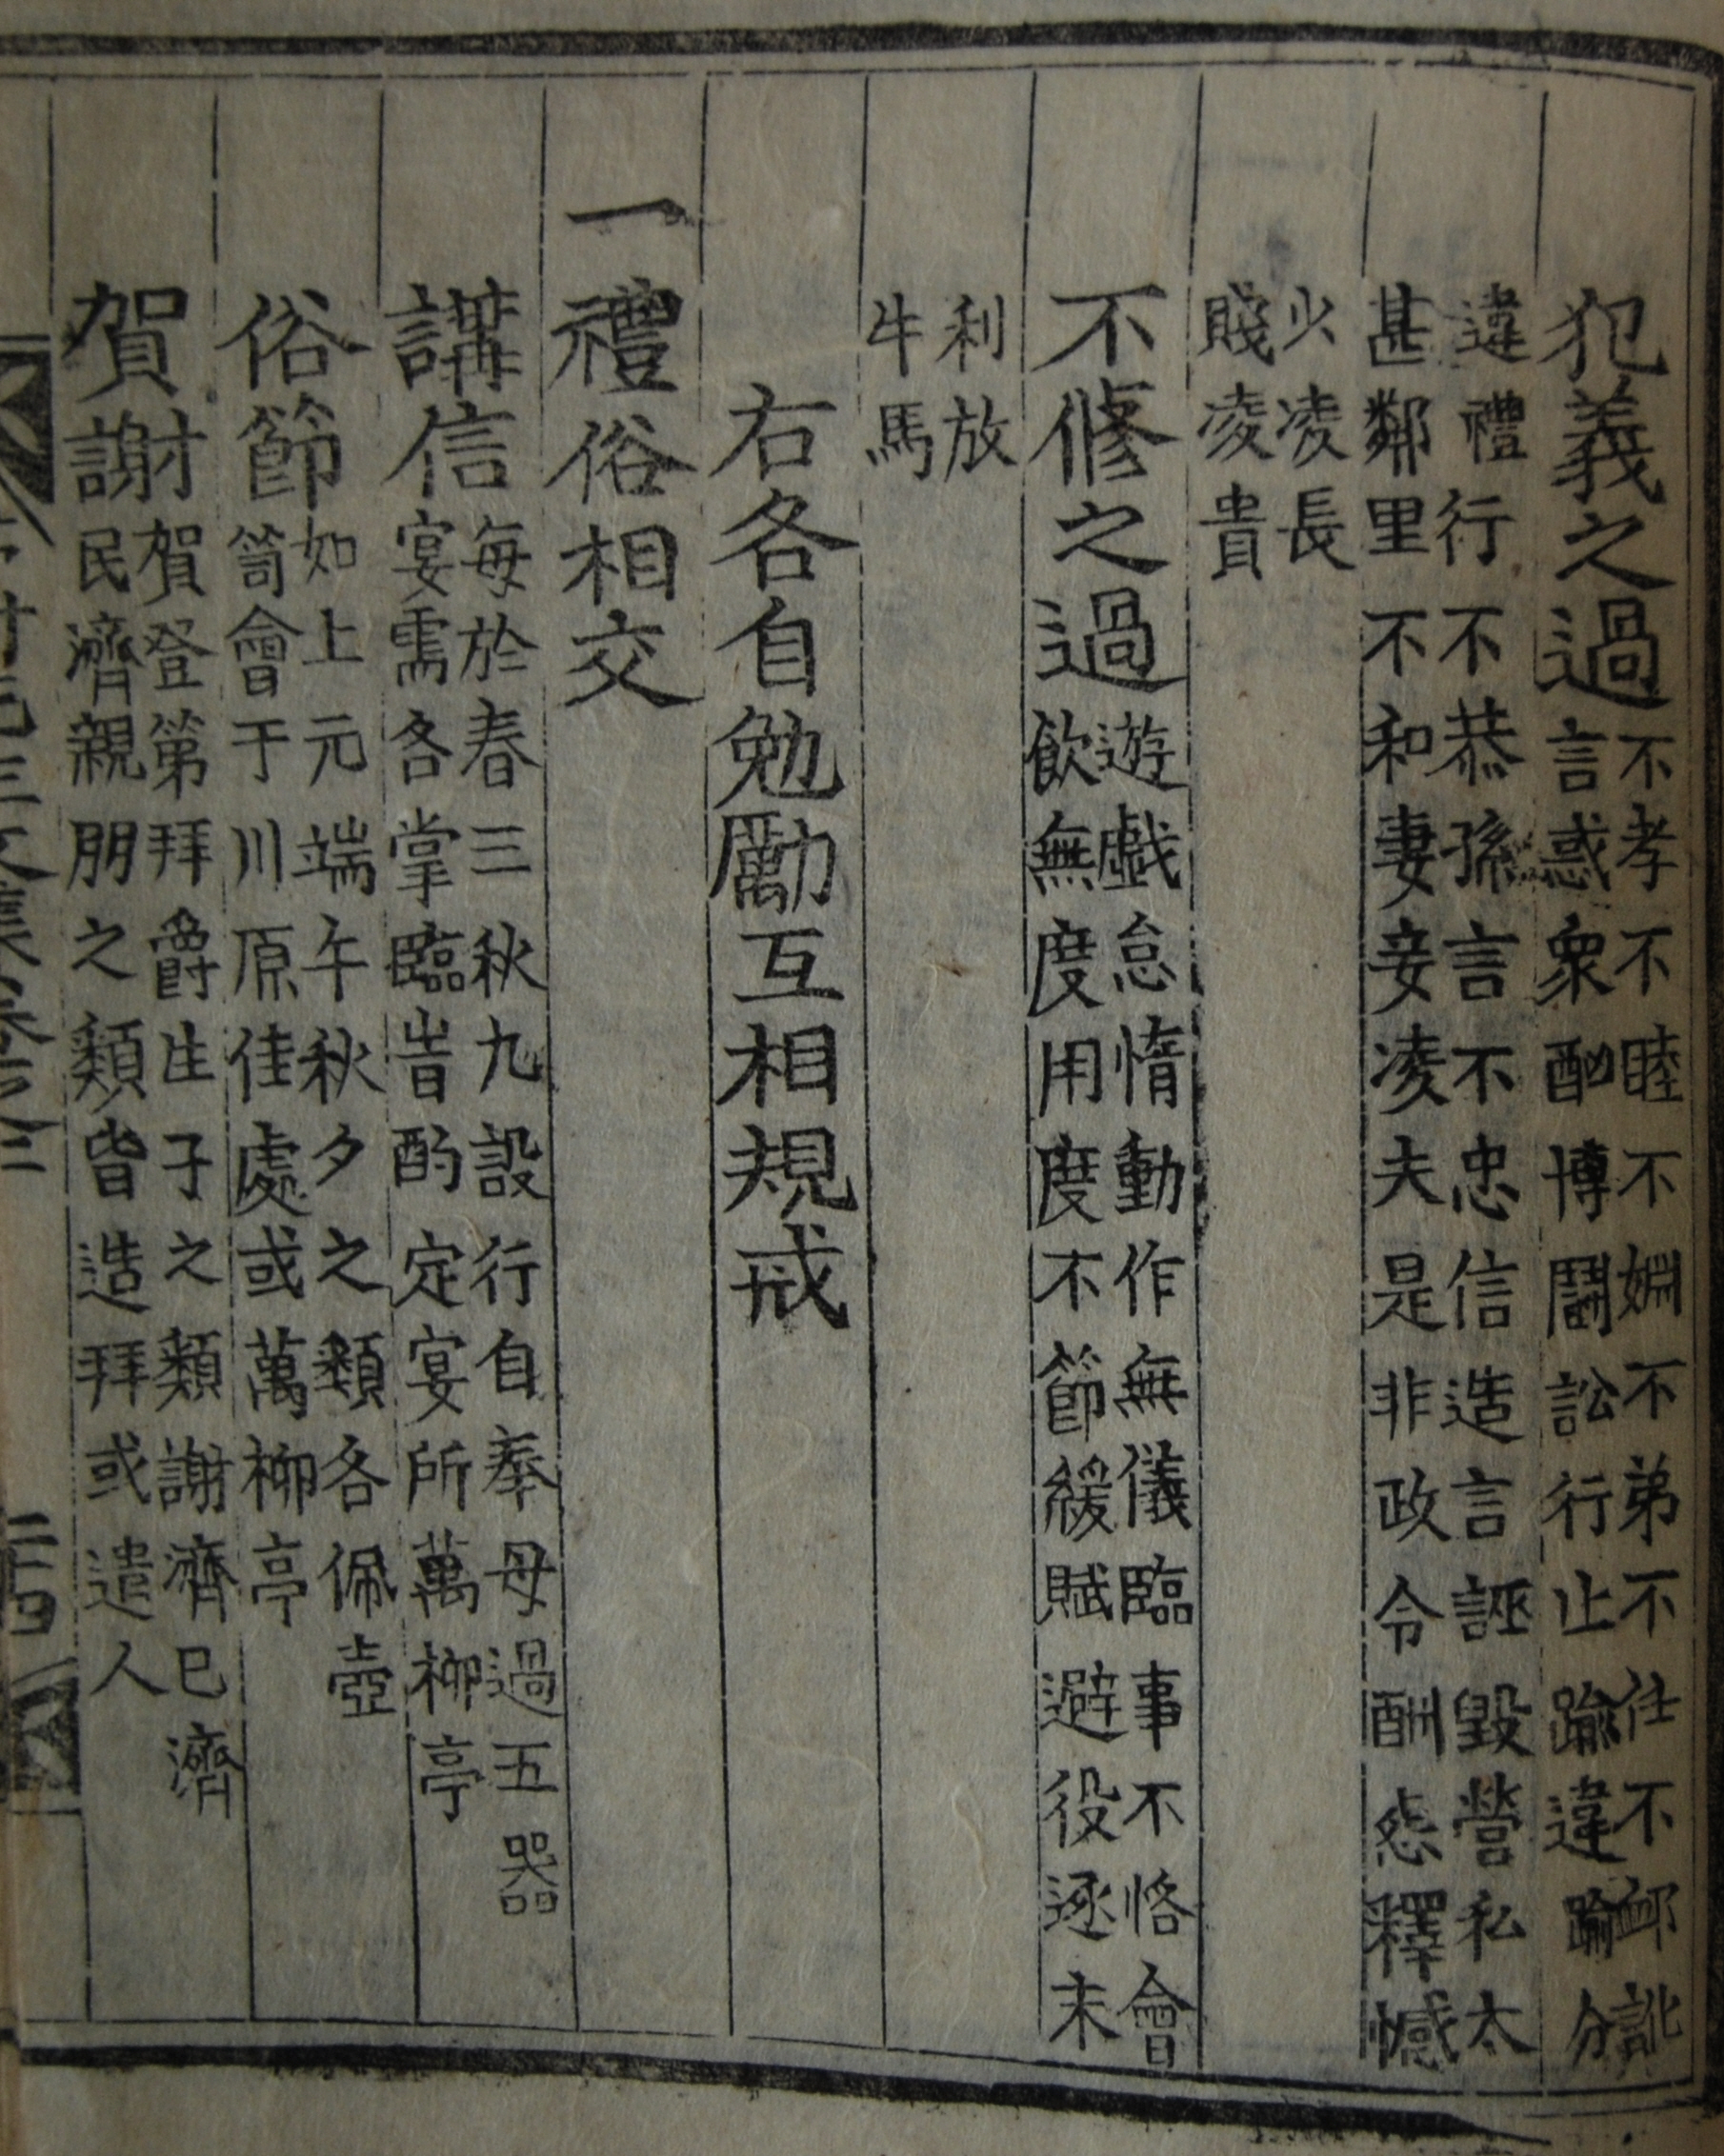 犯義之過 不孝不睦不婣不弟不任不䘏訛
言惑衆酗博鬪訟行止踰違踰分
違禮行不恭孫言不忠信造言誣毀營私太
甚鄰里不和妻妾凌夫是非政令酬怨釋憾
少凌長
賤凌貴
不修之過 遊戱怠惰動作無儀臨事不恪會
飮無度用度不節緩賦避役逐末
利放
牛馬
右各自勉勵互相規戒
一禮俗相交
講信 每於春三秋九設行自奉毋過五器
宴需各掌臨時酌定宴所萬柳亭
俗節 如上元端午秋夕之類各佩壺
笥會于川原佳處或萬柳亭
賀謝 賀登第拜爵生子之類謝濟已濟
民濟親朋之類皆造拜或遣人
二十四